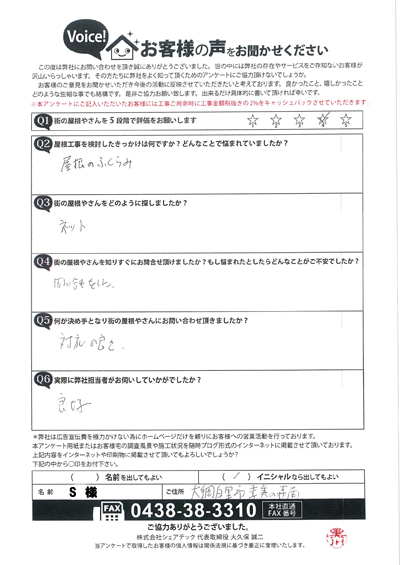 Voice!
お客様の声をお聞かせください
この度は弊社にお問い合わせを頂き誠にありがとうございました。世の中には弊社の存在やサービスをご存知ないお客様が
沢山いらっしゃいます。その方たちに弊社をよく知って頂くためのアンケートにご協力頂けないでしょうか。
お客様のご意見をお聞かせいただき今後の活動に反映させていただきたいと考えております。良かったこと、嬉しかったこと
どのような些細な事でも結構です。是非ご協力お願い致します。出来るだけ具体的に書いて頂ければ幸いです。
※本アンケートにご記入いただいたお客様には工事ご用命時に工事金額税抜きの2%をキャッシュバックさせていただきます。
Q1 街の屋根やさんを5段階で評価をお願いします
Q2 屋根工事を検討したきっかけは何ですか？どんなことで悩まれていましたか？
屋根のふくらみ
Q3 街の屋根やさんをどのように探しましたか？
ネット
Q4 街の屋根やさんを知りすぐにお問合せ頂けましたか？もし悩まれたとしたらどんなことがご不安でしたか？
Q5 何が決め手となり街の屋根やさんにお問い合わせ頂きましたか？
対応の良さ
Q6 実際に弊社担当者がお伺いしていかがでしたか？
良好
※弊社は広告宣伝費を極力かけない為にホームページだけを頼りにお客様への営業活動を行っております。
本アンケート用紙またはお客様宅の調査風景や施工状況を随時ブログ形式のインターネットに掲載させて頂いております。
上記内容をインターネットや印刷物に掲載させて頂いてもよろしいでしょうか？
下記の中から○印をお付け下さい。
( ) 名前を出してもよい ( ) イニシャルなら出してもよい
名前 S 様 ご住所 大網白里市
FAX 0438-38-3310 本社直通 FAX番号
ご協力ありがとうございました。
株式会社シェアテック 代表取締役 大久保 誠二
当アンケートで取得したお客様の個人情報は関係法規に基づき厳正に管理いたします。